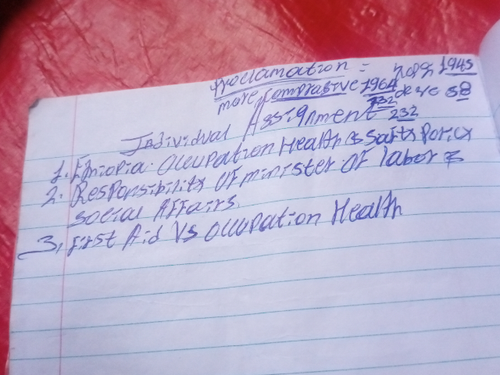 Proclamation = 1945
more comprasive 1964 58
Individual Assignment 232
1. Ethiopia Occupation Health & Safty Policy
2. Responsibility of minister of labor &
Social Affairs.
3, First Aid Vs Occupation Health